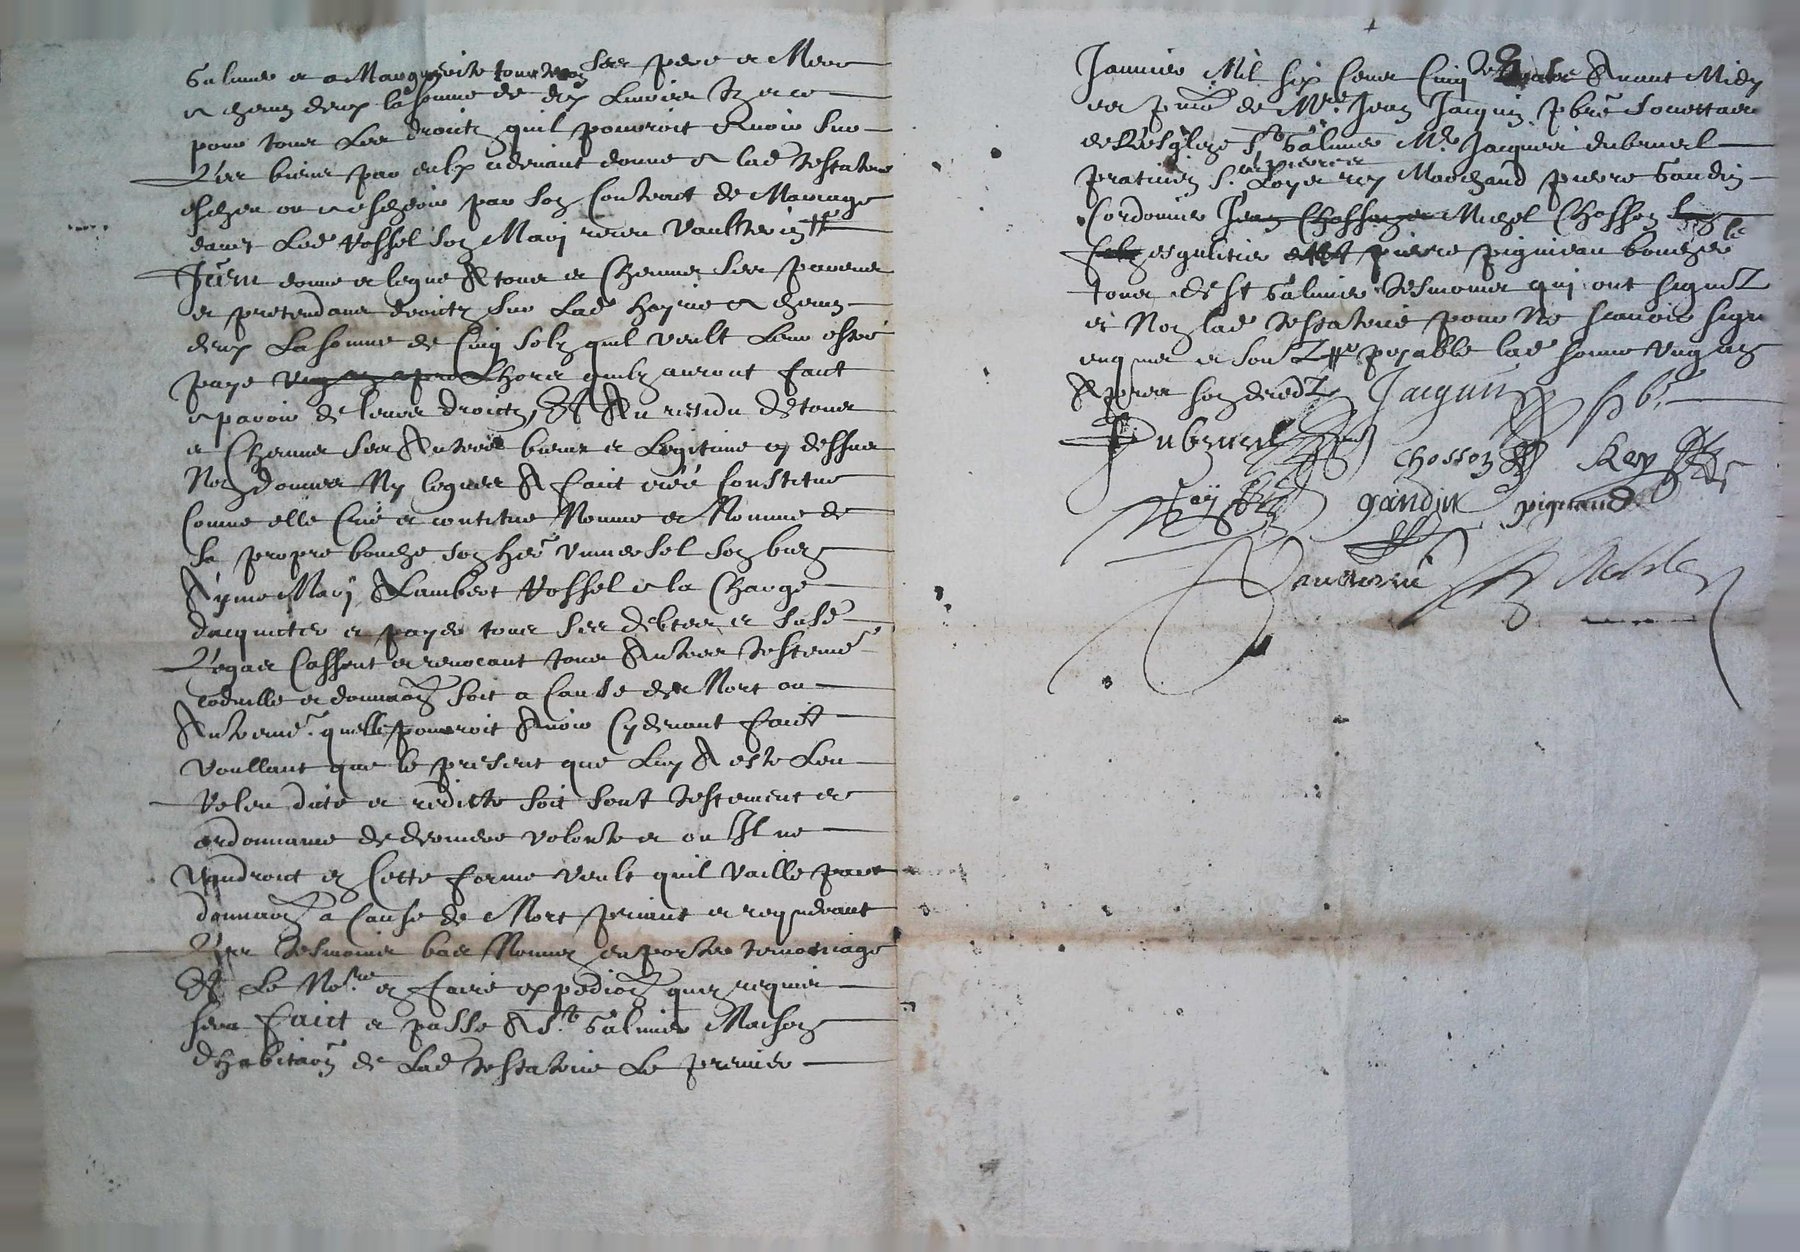 Galmier et a Marguerite tourton ses pere et Mere
a chacun deux la somme de dix Livres Et ce
pour tous Les droictz quil pourroit avoir sur
Les biens par eulx cidevant donné a lad testatrice
par son Contract de Mariage
avec Led Vossel son Mary receu Vaultherin
Item donne et legue A tous et Chacuns ses parens
et pretendans droictz sur Lad hoyrie a chacun
deux La somme de Cinq solz quil veult Leur estre
paye Lhors quilz auront faict
aparoir de leurs droictz, Et Au residu de tous
et Chacuns ses Autres biens et Legitime cy dessus
Non donnes Ny legues A faict creé constitue
Comme elle Cree et contitue Nomme et Nomme de
sa propre bouche son her universel son bien
Aymé Mary Lambert Vossel a la Charge
dacquiter et payer tous ses debtes et susd
Legatz Cassant et revocant tous Autres testamt
codicille et donnaon soit a Cause de Mort ou
Autremt quelle pourroit Avoir Cydevant faict
Voullant que le present que Luy A este Leu
Releu dicte et redicte soit sont testement et
ordonnance de derniere volonte et ou Il ne
Vaudroict en Cette forme veult quil vaille par
donnaon a Cause de Mort priant et requerant
Les tesmoins bas Nommes en porter temoniage
Et Le Nore en faire expedion quen requis
sera faict et passe A St Galmier Maison
dhabitaon de Lad testatrice Le premier
Janvier Mil six Cens Cinq Avant Midy
es pnce de Mre Jean Jacquin pbre Societtaire
de Lesglize St Galmier Me Jacques dubrueil
praticien Sr Loys rey Marchand pierre Gandin
Cordonier Jean Chasson Michel Chosson
esguilitier pierre pigniau boucher
tous de St Galmier tesmoins qui ont signez
et Non lad testatrice pour Ne scavoir signe
enquise et sont payable lad somme Ung an
Apres son dred Jacquin pbr
Dubrueil Chosson Rey
Rey gandin pigniaud
Vaultherin